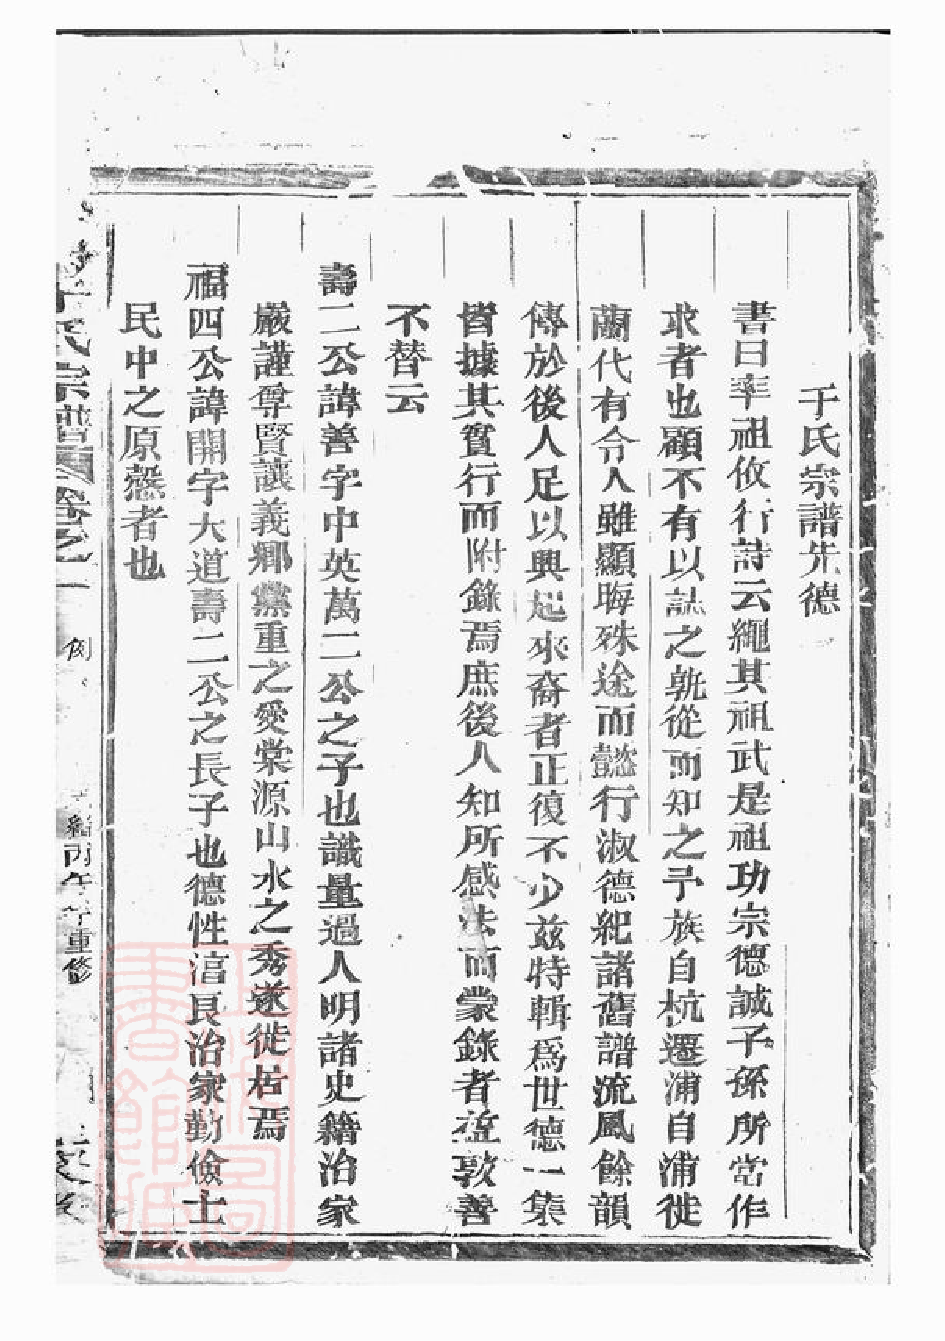 于氏宗譜先德
書曰率祖攸行詩云繩其祖武是祖功宗德誠子孫所當作
求者也顧不有以誌之孰從而知之予族自杭遷浦自浦徙
蘭代有令人雖顯晦殊途而懿行淑德紀諸舊譜流風餘韻
傳於後人足以興起來裔者正復不少兹特輯爲世德一集
皆據其實行而附錄焉庶後人知所感法而蒙錄者益敦善
不替云
壽二公諱善字中英萬二公之子也識量過人明諸史籍治家
嚴謹尊賢讓義鄉黨重之愛棠源山水之秀遂徙居焉
福四公諱開字大道壽二公之長子也德性溫良治家勤儉士
民中之原慤者也
于氏宗譜 卷之一 例 丙午年重修